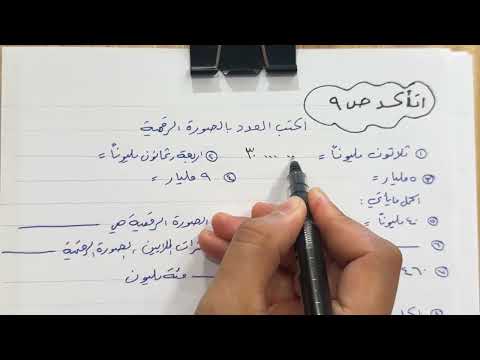 اتأكد ص ٩
اكتب العدد بالصورة الرقمية
١) ثلاثون مليوناً = ٣٠ ... ... ٢) اربعة وثمانون مليوناً =
٣) ٥ مليار = ٤) ٩ مليار =
اكمل ماياتي :
٤٠ مليوناً = الصورة الرقمية ص
الملايين ، الصورة الرقمية
٤٦٠ مئة مليون